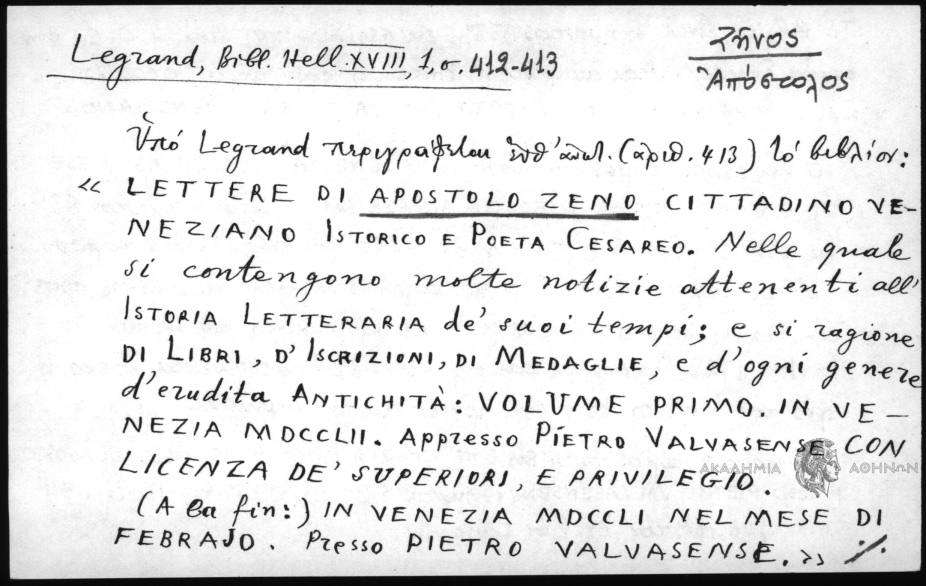 Legrand, Bibl. Hell. XVIII 1, σ. 412-413
Ζῆνος
Ἀπόστολος
Ὑπό Legrand περιγράφεται ὑπθ' ἀριθ. (ἀριθ. 413) τό βιβλίον:
« LETTERE DI APOSTOLO ZENO CITTADINO VE-
NEZIANO ISTORICO E POETA CESAREO. Nelle quale
si contengono molte notizie attenenti all'
ISTORIA LETTERARIA de' suoi tempi; e si ragione
DI LIBRI, D'ISCRIZIONI, DI MEDAGLIE, e d'ogni genere
d'erudita ANTICHITÀ: VOLUME PRIMO. IN VE-
NEZIA MDCCLII. Appresso PIETRO VALVASENSE CON
LICENZA DE' SUPERIORI, E PRIVILEGIO.
(A la fin:) IN VENEZIA MDCCLI NEL MESE DI
FEBRAJO. Presso PIETRO VALVASENSE. » ./.
ΑΚΑΔΗΜΙΑ ΑΘΗΝΩΝ